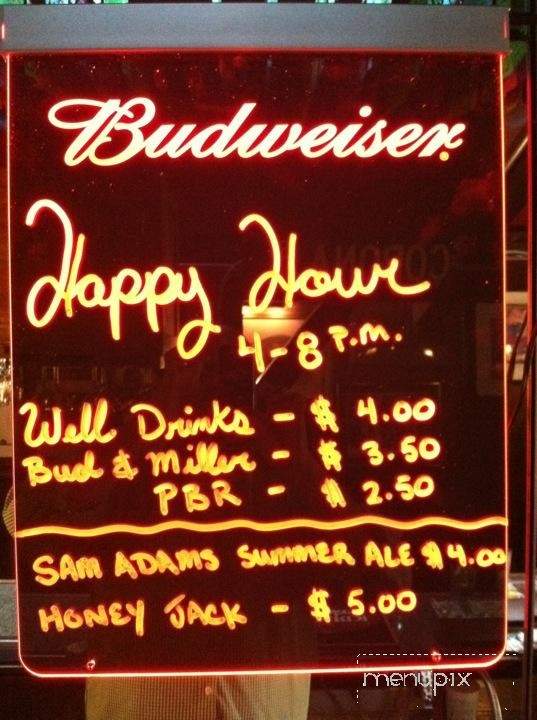 Budweiser
Happy Hour
4-8 P.M.
Well Drinks - $ 4.00
Bud & Miller - $ 3.50
PBR - $ 2.50
SAM ADAMS SUMMER ALE $4.00
HONEY JACK - $ 5.00
CORONA
menupix